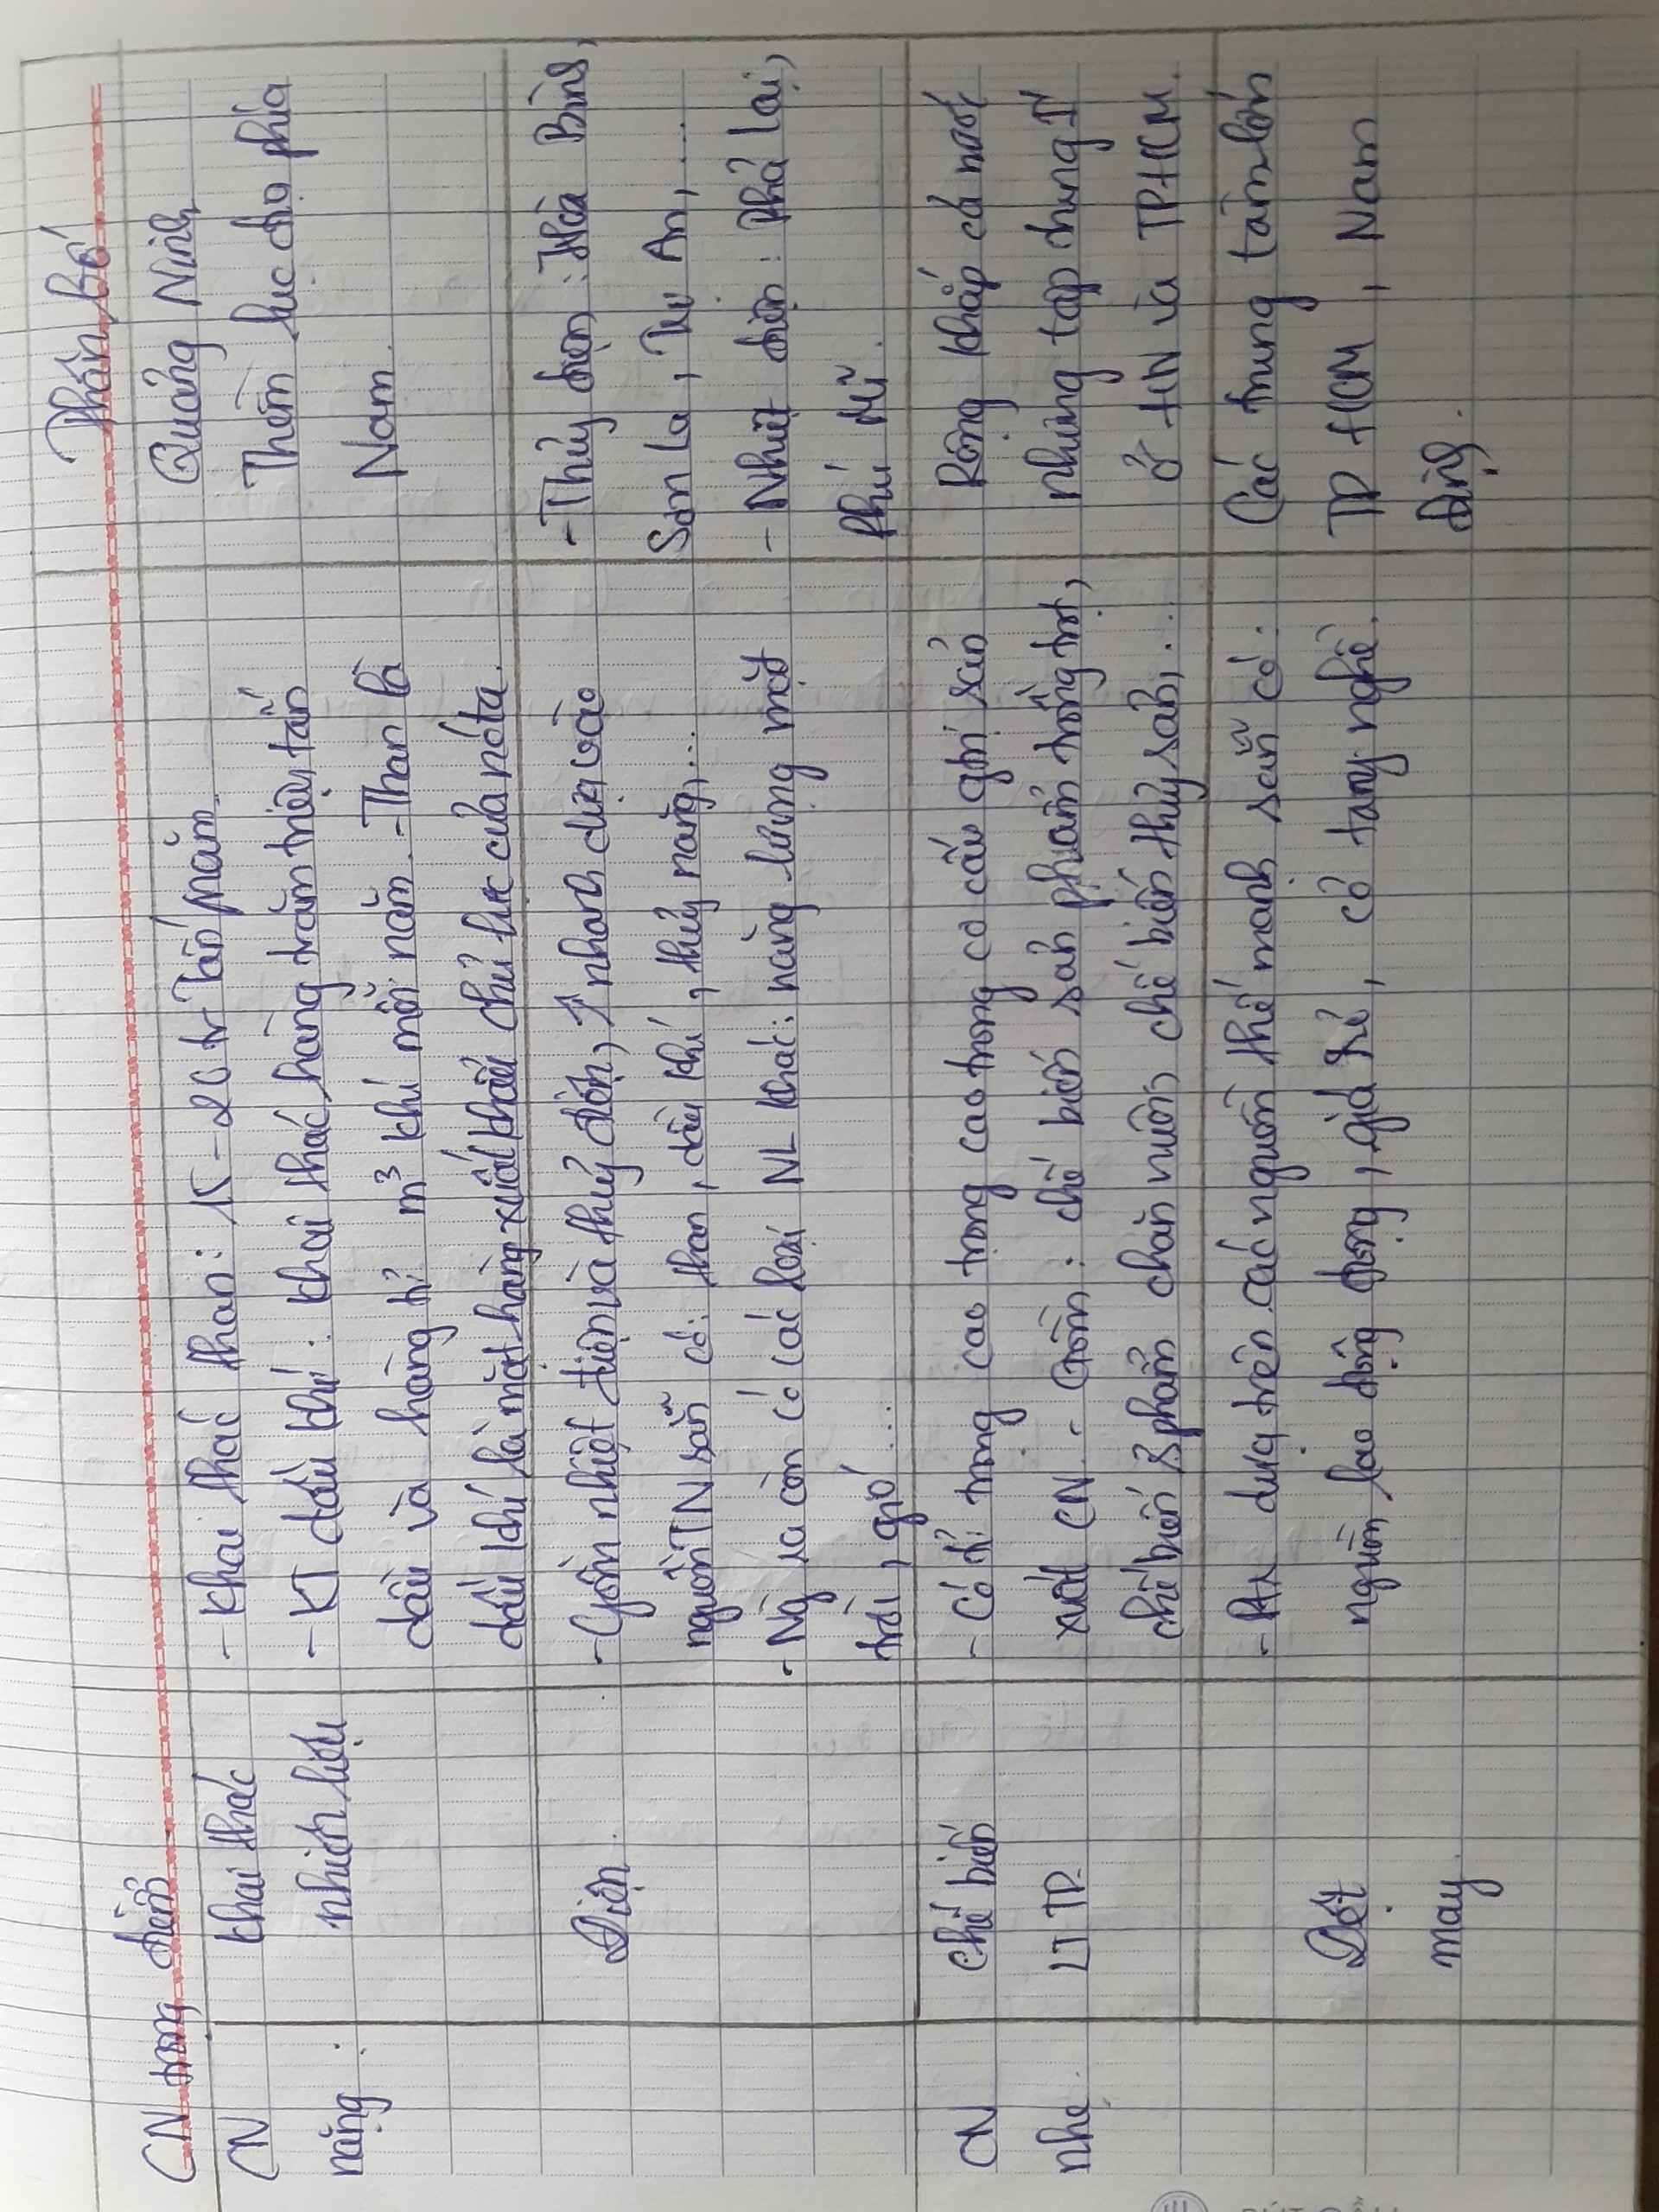 CN trọng điểm
Phân bố
CN nặng.
khai thác
nhiên liệu
- khai thác than: 15-20 tr Tấn/năm.
- KT dầu khí: khai thác hàng trăm triệu tấn
dầu và hàng tỉ m³ khí mỗi năm. - Than là
dầu khí là một hàng xuất khẩu chủ lực của nc ta.
Quảng Ninh
Thềm lục địa phía
Nam.
Điện.
- Gồm nhiệt điện và thuỷ điện, ↑ nhanh dựa vào
nguồn TN sẵn có: than, dầu khí, thuỷ năng,...
- Ng ra còn có các loại NL khác: năng lượng mặt
trời, gió...
- Thủy điện: Hòa Bình,
Sơn La, Trị An,...
- Nhiệt điện: Phả Lại,
Phú Mĩ.
CN
nhẹ.
Chế biến
LT TP
- Có tỉ trọng cao trong cao trong cơ cấu gtrị sản
xuất CN. - Gồm: chế biến sản phẩm trồng trọt,
chế biến s phẩm chăn nuôi, chế biến thuỷ sản,...
Rộng khắp cả nước
nhưng tập chung
ở HN và TP HCM.
Dệt
may
dựa trên các nguồn thế mạnh sẵn có:
nguồn lao động đông, giá rẻ, có tay nghề.
Các trung tâm lớn
TP HCM, Nam
Định.